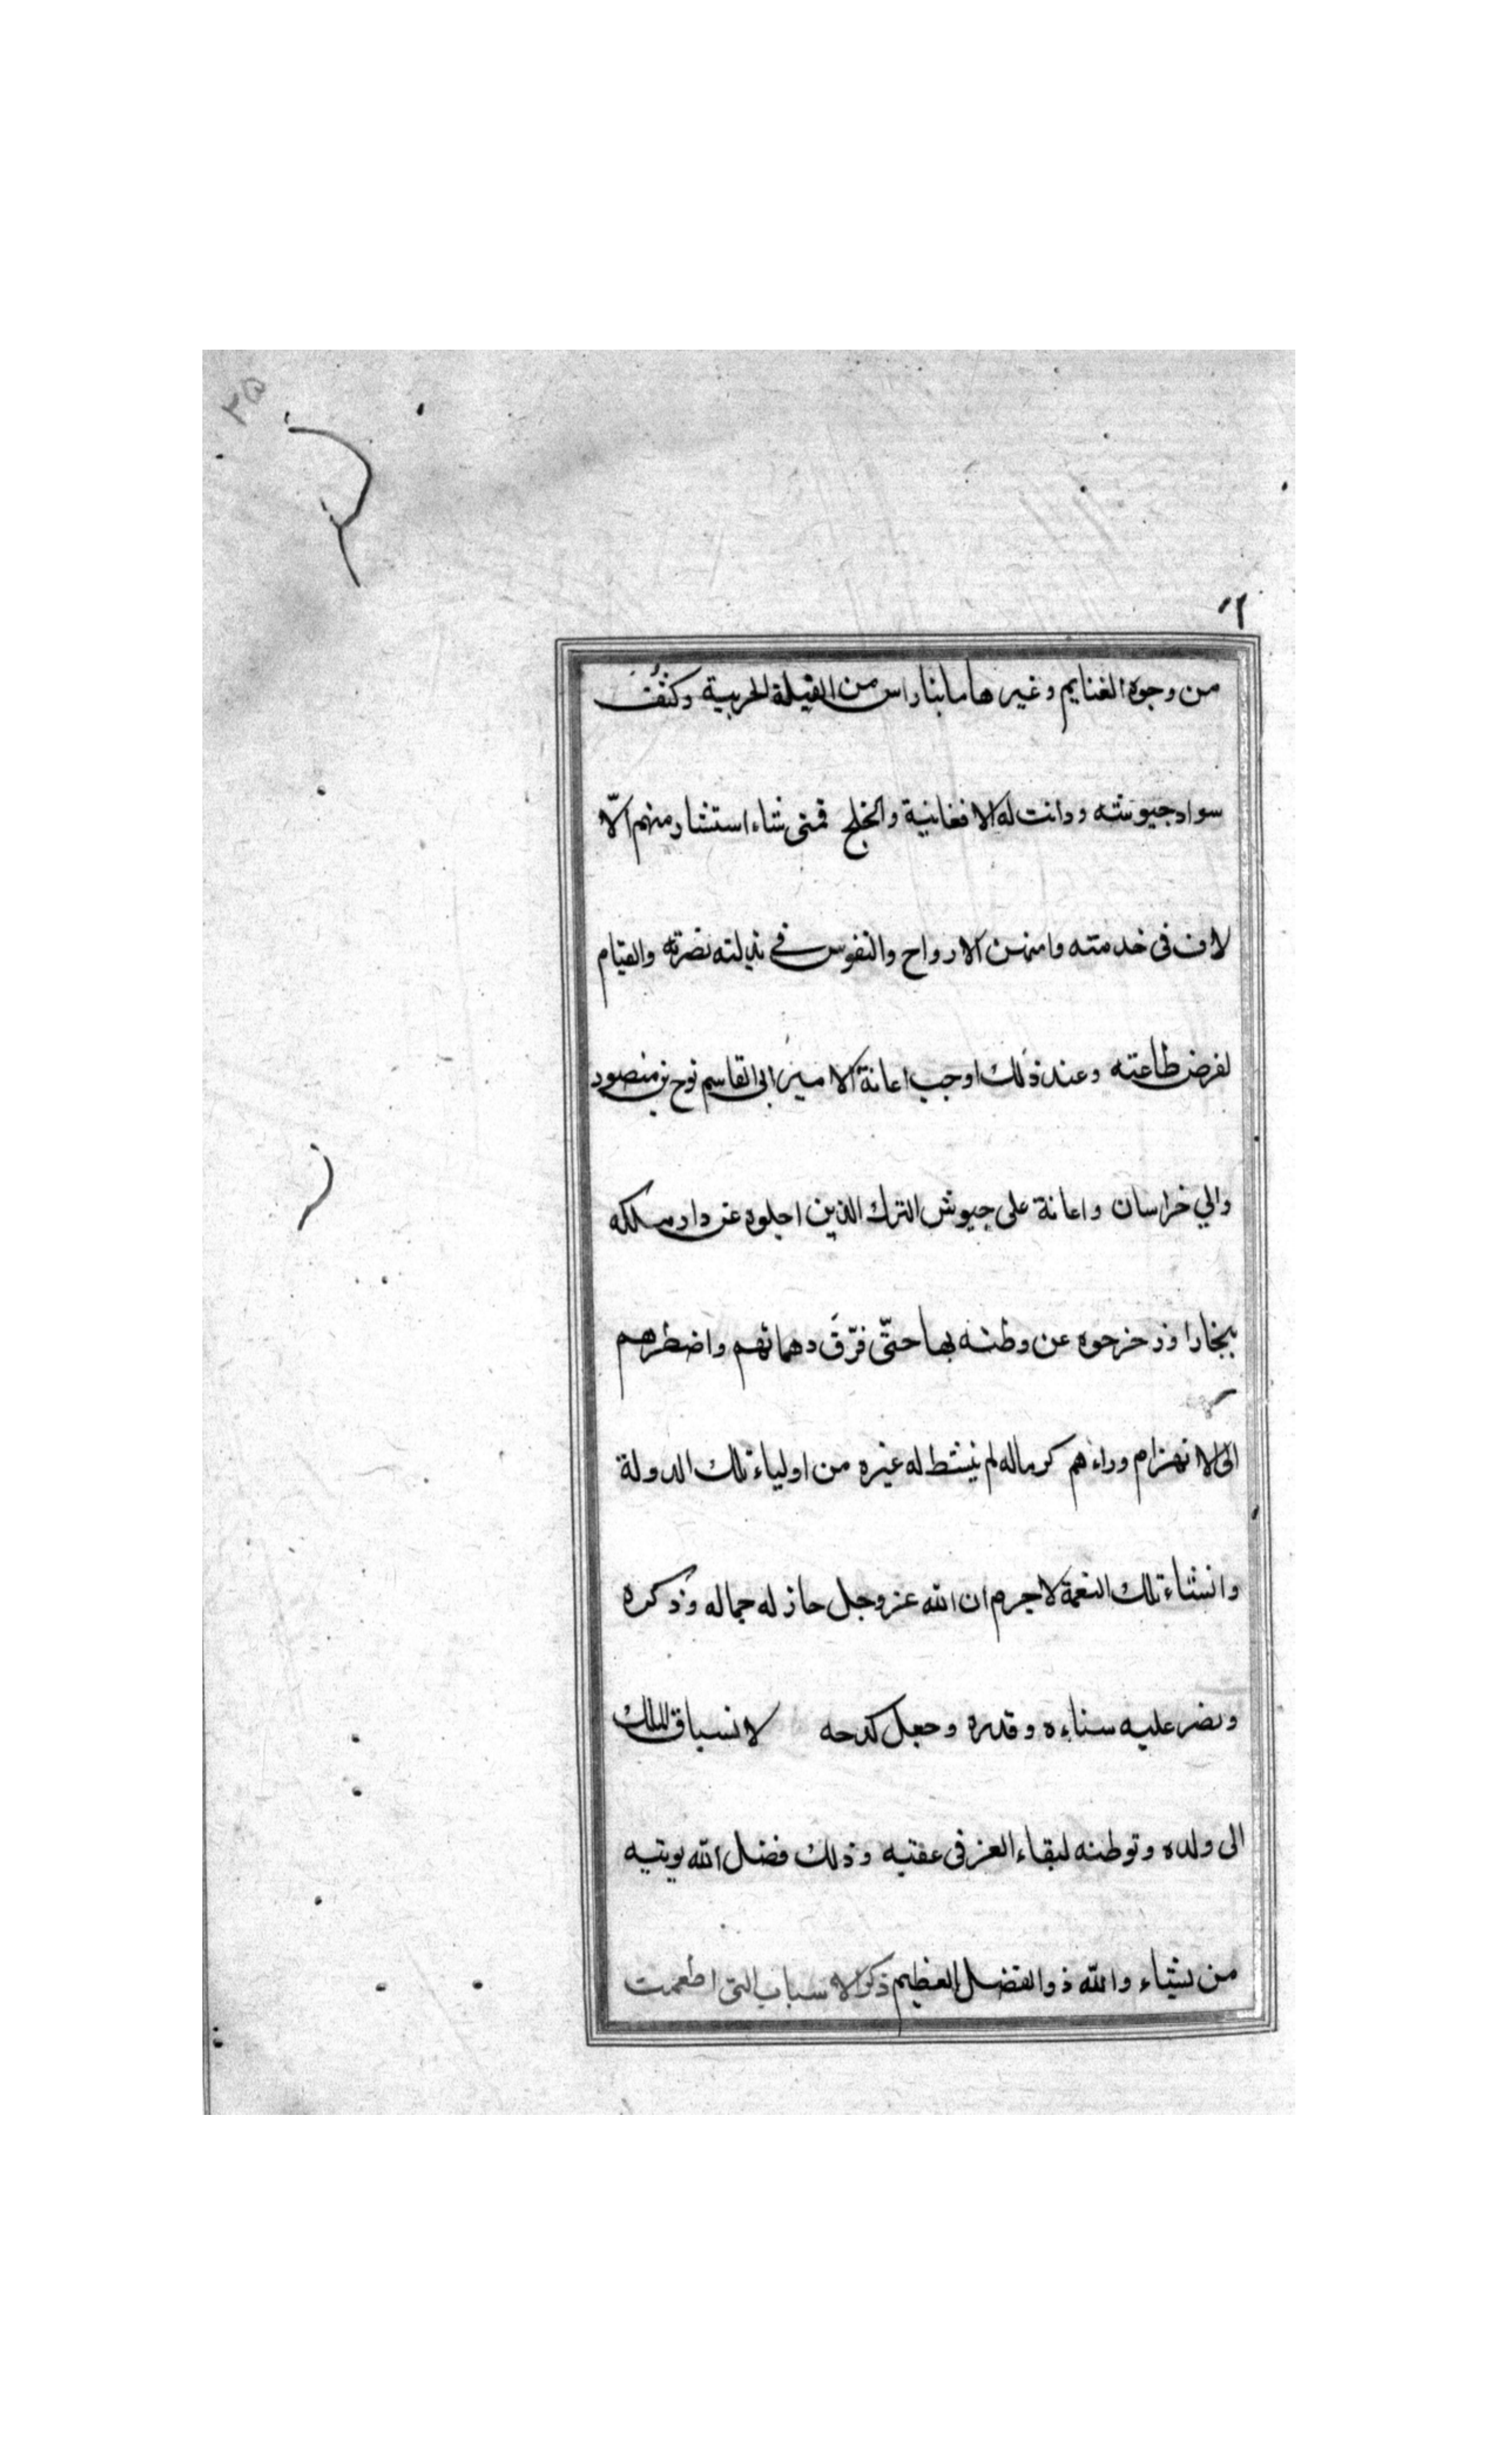 ٢٥
من وجوه الغنايم وغيرها مابناراس من الفيلة الحربية وكثفت
سواد جيوشه ودانت له الافغانية والخلج فمتى شاء استشار منهم الآ
لاف فى خدمته وامتهن الارواح والنفوس في نصرته والقيام
لفرض طاعته وعند ذلك اوجب اعانة الامير ابى القاسم نوح بن منصور
والي خراسان واعانة على جيوش الترك الذين اجلوه عن دار ملكه
ببخارا وزحزحوه عن وطنه بها حتّى فرّق دهمائهم واضطرهم
الى الانهزام وراءهم كرماله لم ينشط له غيره من اولياء تلك الدولة
وانشاء تلك النعمة لاجرم ان الله عز وجل حاز له جماله وذكره
ونضر عليه سناءه وقدره وجعل كدحه لانسياق الملك
الى ولده وتوطنه لبقاء العز فى عقبه وذلك فضل الله يوتيه
من يشاء والله ذو الفضل العظيم ذكر الاسباب التى اطعمت